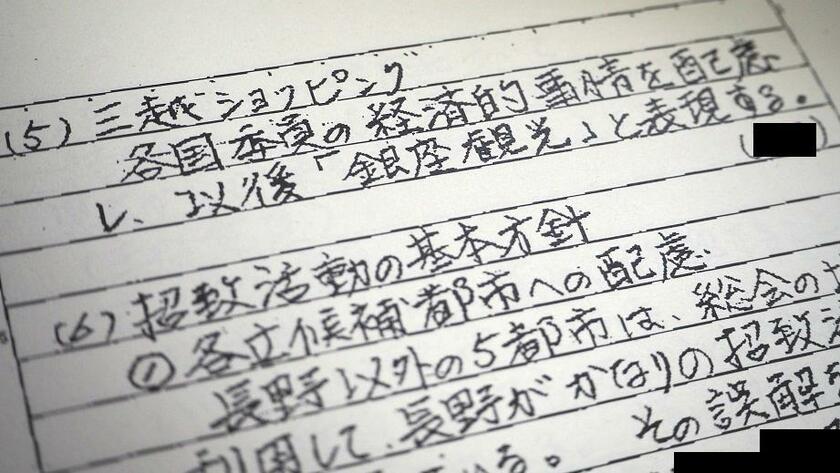 (5) 三越ショッピング
各国委員の経済的事情を配慮
し、以後「銀座観光」と表現する。
(6) 招致活動の基本方針
① 各立候補都市への配慮
長野以外の5都市は、総会の
利用して、長野がかなりの招致
その誤解を
る。